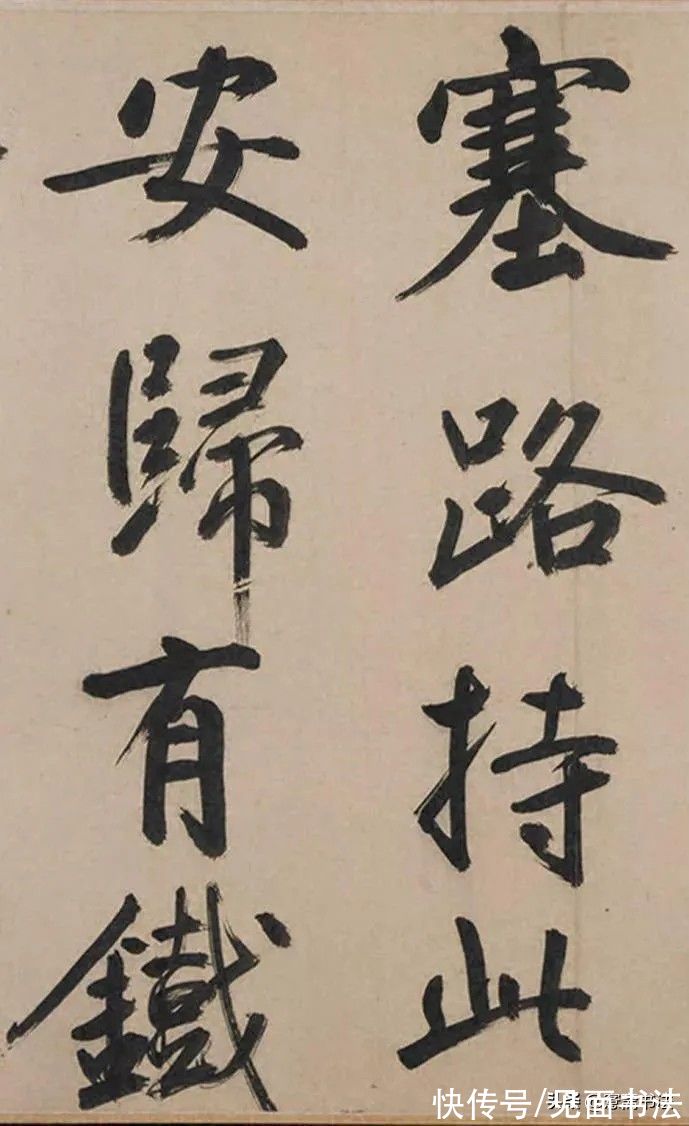 塞路持此
安歸有鐵
快传号/见面书法